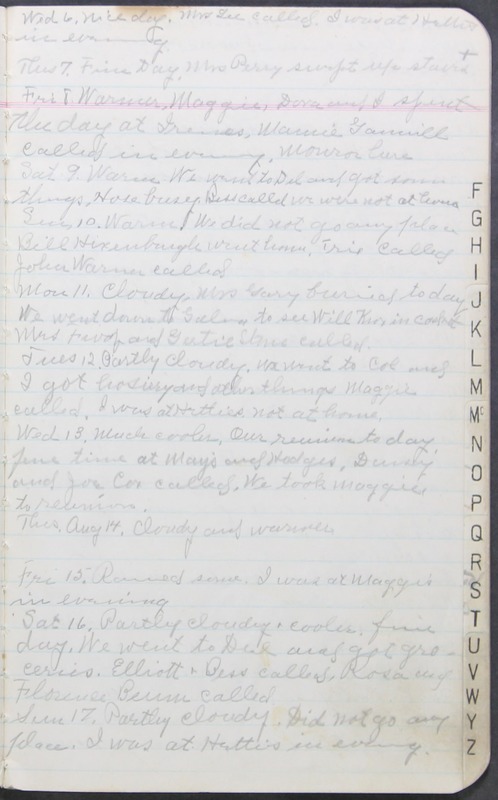 Wed 6. Nice day. Mrs Lee called. I was at Hatties
in evening.
Thus 7. Fine Day, Mrs Perry swept up stairs
Fri 8 Warmer, Maggie, Dora and I spent
the day at Irenes, Mamie
called in evening, Monroe here
Sat 9. Warm We went to Del and got some
things, Rose busey, Bess called we were not at home
Sun, 10. Warm, We did not go any place
Bill went home, Iris called
John Warner called
Mon 11. Cloudy, Mrs Gary buried today
We went down to to see Will in
Mrs and called.
Tues 12, Partly Cloudy. We went to Col and
I got and other things Maggie
called, I was at Hatties not at home.
Wed 13, Much cooler, Our reunion to day,
fine time at Mays and Hodges,
and Joe Cox called, We took Maggie
to reunion.
Thus, Aug 14, Cloudy and warmer
Fri 15. Rained some. I was at Maggies
in evening
Sat 16, Partly cloudy + cooler, fine
day, We went to Del and got gro-
ceries. Elliott + Bess called, Rosa and
Florence called
Sun 17. Partly cloudy. Did not go any
place. I was at Hatties in evening.
F
G
H
I
J
K
L
M
Mc
N
O
P
Q
R
S
T
U
V
W
Y
Z